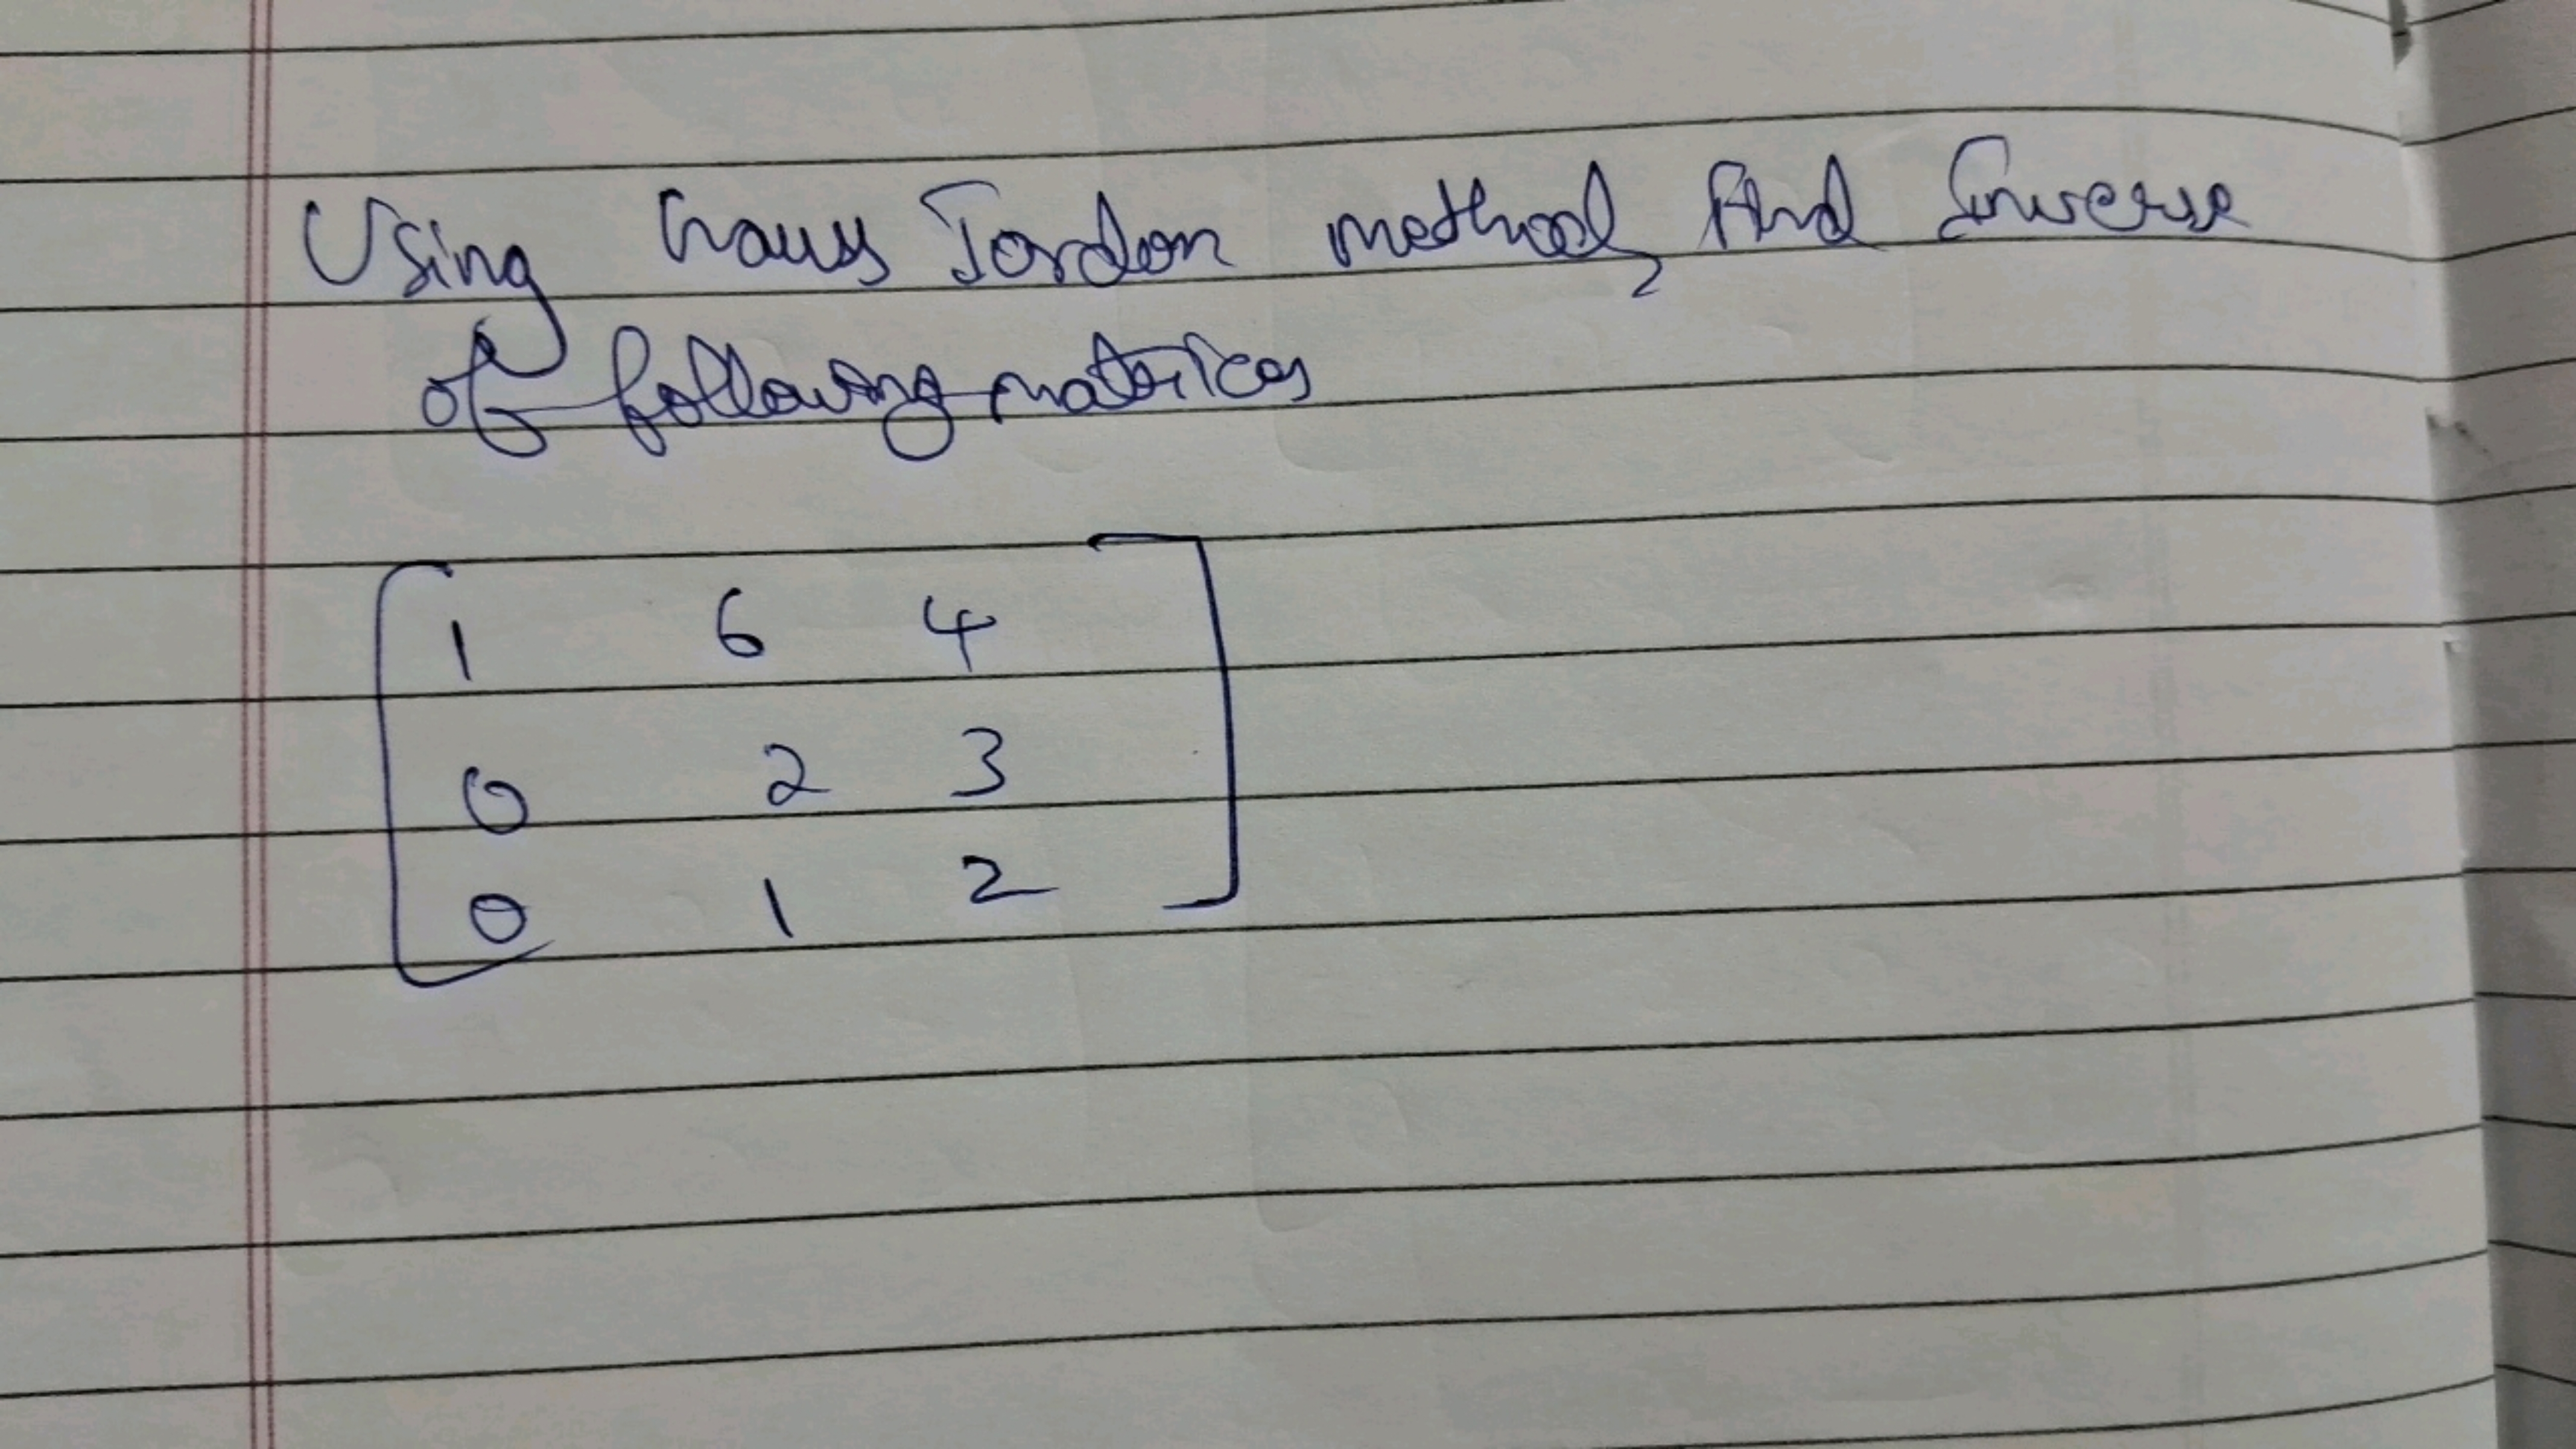 Using Gauss Jordon method, find Inverse
of following matrices
1 6 4
0 2 3
0 1 2